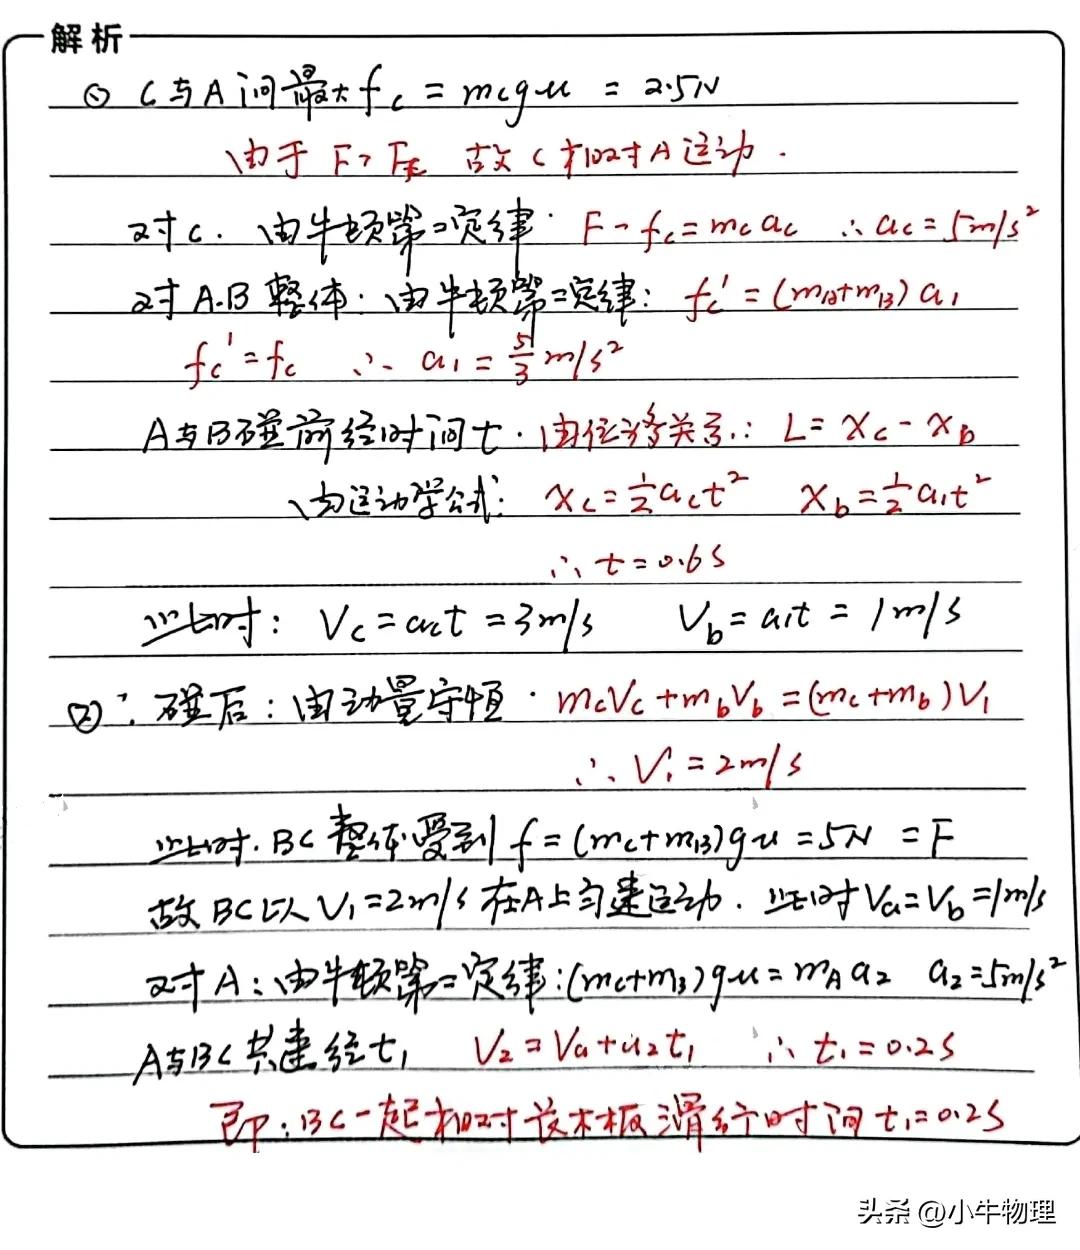 解析
① C与A间最大fc = mcgu = 2.5N
由于 F > Ff 故C相对A运动.
对C. 由牛顿第二定律: F - fc = mcac ∴ ac = 5m/s²
对A.B整体: 由牛顿第二定律: fc' = (mA+mB)a1
fc' = fc ∴ a1 = 5/3 m/s²
A与B碰前经时间t. 由位移关系: L = xc - xb
由运动学公式: xc = 1/2act² xb = 1/2a1t²
∴ t = 0.6s
此时: Vc = act = 3m/s Vb = a1t = 1m/s
② ∴ 碰后: 由动量守恒. mcVc + mbVb = (mc+mb)V1
∴ V1 = 2m/s
此时. BC整体受到 f = (mc+mB)gu = 5N = F
故BC以V1=2m/s在A上匀速运动. 此时Va=Vb=1m/s
对A: 由牛顿第二定律: (mc+mB)gu = mAa2 a2=5m/s²
A与BC共速经t1 V2 = Va+a2t1 ∴ t1=0.2s
即: BC一起相对长木板滑行时间t1=0.2s
头条 @小牛物理